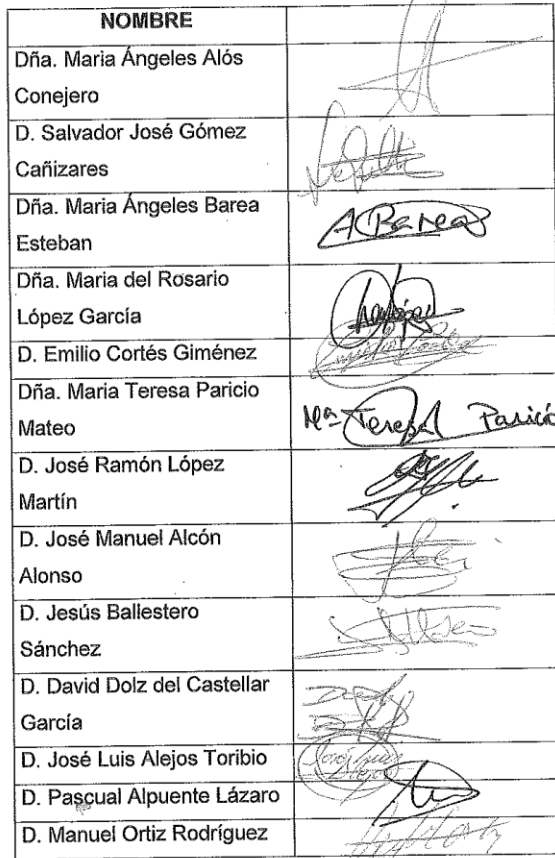 NOMBRE
Dña. Maria Ángeles Alós
Conejero
D. Salvador José Gómez
Cañizares
Dña. Maria Ángeles Barea
Esteban
A Barea
Dña. Maria del Rosario
López García
D. Emilio Cortés Giménez
Dña. Maria Teresa Paricio
Mateo
Mª Teresa Paricio
D. José Ramón López
Martín
D. José Manuel Alcón
Alonso
D. Jesús Ballestero
Sánchez
D. David Dolz del Castellar
García
D. José Luis Alejos Toribio
D. Pascual Alpuente Lázaro
D. Manuel Ortiz Rodríguez